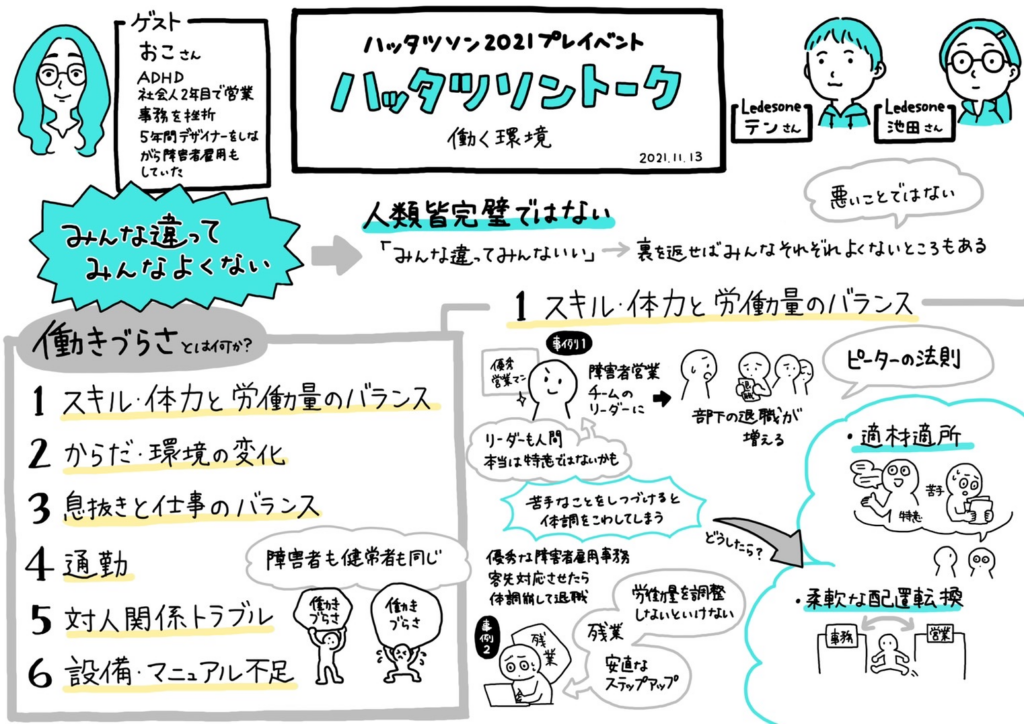 ゲスト
おこさん
ADHD
社会人2年目で営業
事務を挫折
5年間デザイナーをしな
がら障害者雇用も
していた
ハッタツソン2021プレイベント
ハッタツソントーク
働く環境
2021.11.13
Ledesone
テンさん
Ledesone
池田さん
みんな違って
みんなよくない
人類皆完璧ではない
「みんな違ってみんないい」→裏を返せばみんなそれぞれよくないところもある
悪いことではない
働きづらさとは何か?
1 スキル・体力と労働量のバランス
2 からだ・環境の変化
3 息抜きと仕事のバランス
4 通勤
5 対人関係トラブル
6 設備・マニュアル不足
障害者も健常者も同じ
働き
づらさ
働き
づらさ
1 スキル・体力と労働量のバランス
事例1
優秀
営業マン
障害者営業
チームの
リーダーに
部下の退職が
増える
退職
ピーターの法則
リーダーも人間
本当は特意ではないかも
苦手なことをしつづけると
体調をこわしてしまう
どうしたら?
優秀な障害者雇用事務
客先対応させたら
体調崩して退職
事例2
残業
労働量を調整
しないといけない
残業
安直な
ステップアップ
・適材適所
苦手
特意
・柔軟な配置転換
事務
営業